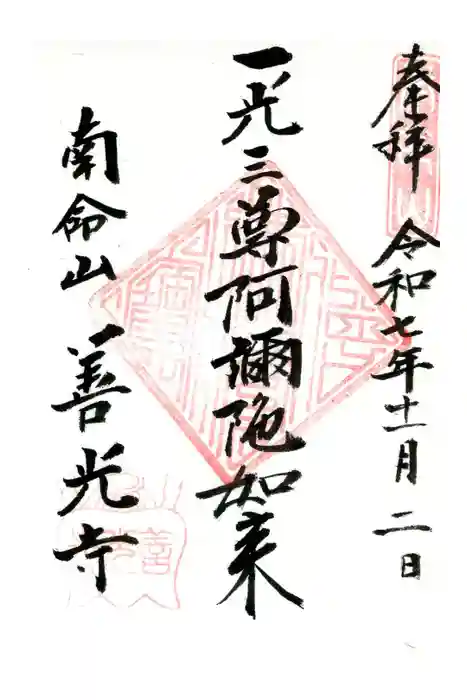 奉拝 令和七年十一月二日
一光三尊阿彌陀如来
南命山 善光寺